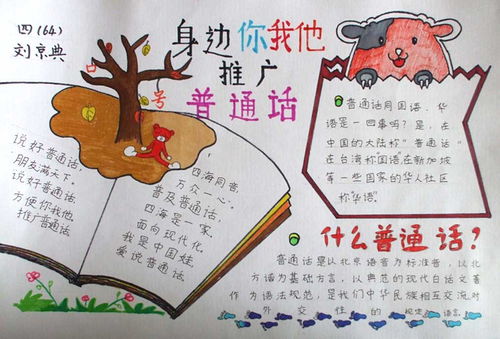 四(64)
刘京典
身边你我他
推广
普通话
口号
说好普通话,
朋友满天下。
说好普通话
方便你我他
推广普通话
四海同音
万众一心。
普及普通话,
四海是一家
面向现代化。
我是中国娃,
爱说普通话
普通话同国语、华
语是一回事吗?是,在
中国的大陆称"普通话"
在台湾称国语在新加坡
等一些国家的华人社区
称"华语"
什么普通话?
普通话是以北京语音为标准音,以北
方话为基础方言,以典范的现代白话文著
作为语法规范,是我们中华民族相互交流对
外交往的规定语言